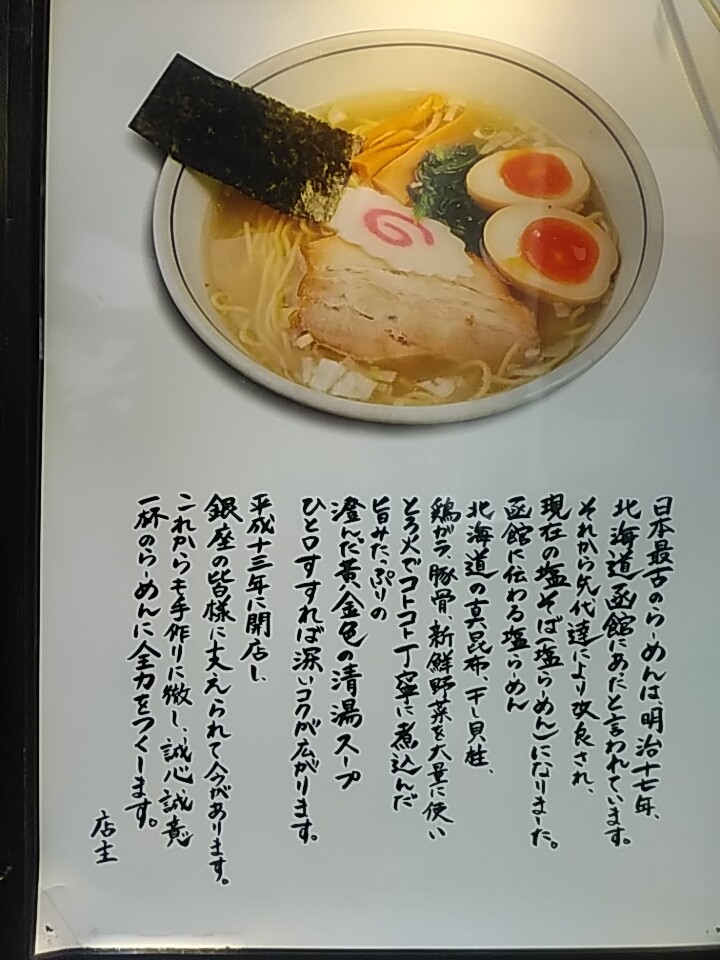 日本最古のらーめんは、明治十七年、
北海道函館にあたと言われています。
それから先代達により改良され、
現在の塩そば(塩らーめん)になりました。
函館に伝わる塩らーめん
北海道の真昆布、干し貝柱、
鶏がラ、豚骨、新鮮野菜を大量に使い
とろ火でコトコト丁寧に煮込んだ
旨みたっぷりの
澄んだ黄金色の清湯スープ
ひと口すすれば深いコクが広がります。
平成十三年に開店し
銀座の皆様に支えられて今があります。
これからも手作りに徹し、誠心誠意
一杯のらーめんに全力をつくします。
店主